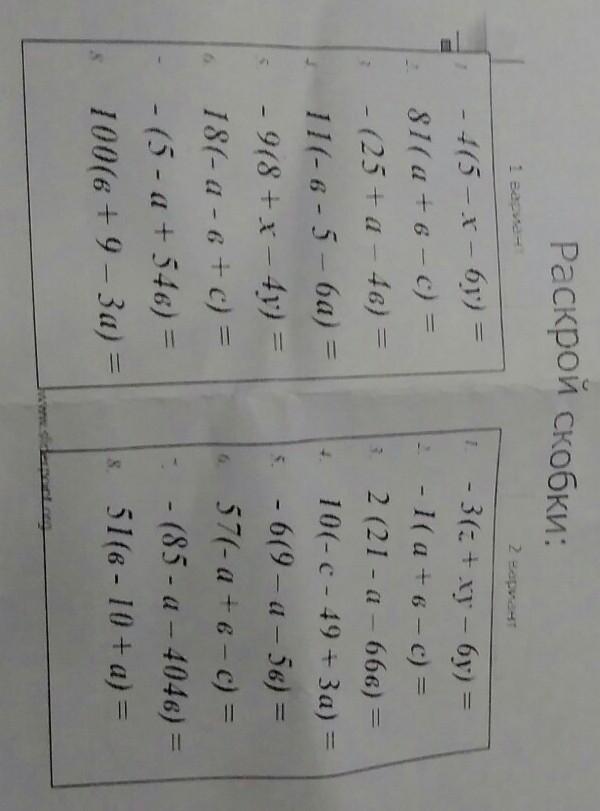 Раскрой скобки:
1 вариант
1. - 4(5 – х – 6у) =
2. 81(а + в – с) =
3. - (25 + а – 4в) =
4. 11(- в - 5 – 6а) =
5. - 9(8 + х – 4у) =
6. 18(- а - в + с) =
7. - (5 - а + 54в) =
8. 100(в + 9 – 3а) =
2 вариант
1. - 3(z + ху – 6у) =
2. - 1(а + в – с) =
3. 2 (21 - а – 66в) =
4. 10(- с - 49 + 3а) =
5. - 6(9 – а – 5в) =
6. 57(- а + в – с) =
7. - (85 - а – 404в) =
8. 51(в - 10 + а) =